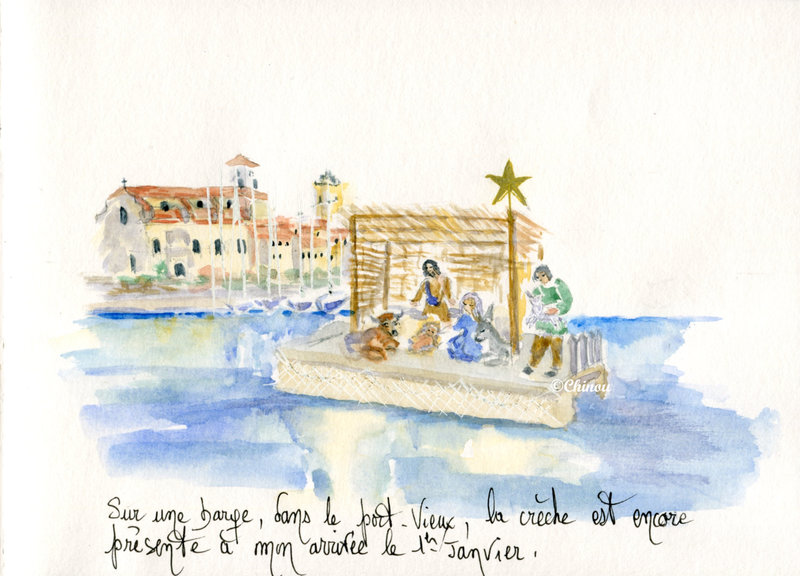 ©Chinou
Sur une barge, dans le port-Vieux, la crèche est encore
présente à mon arrivée le 1er Janvier.